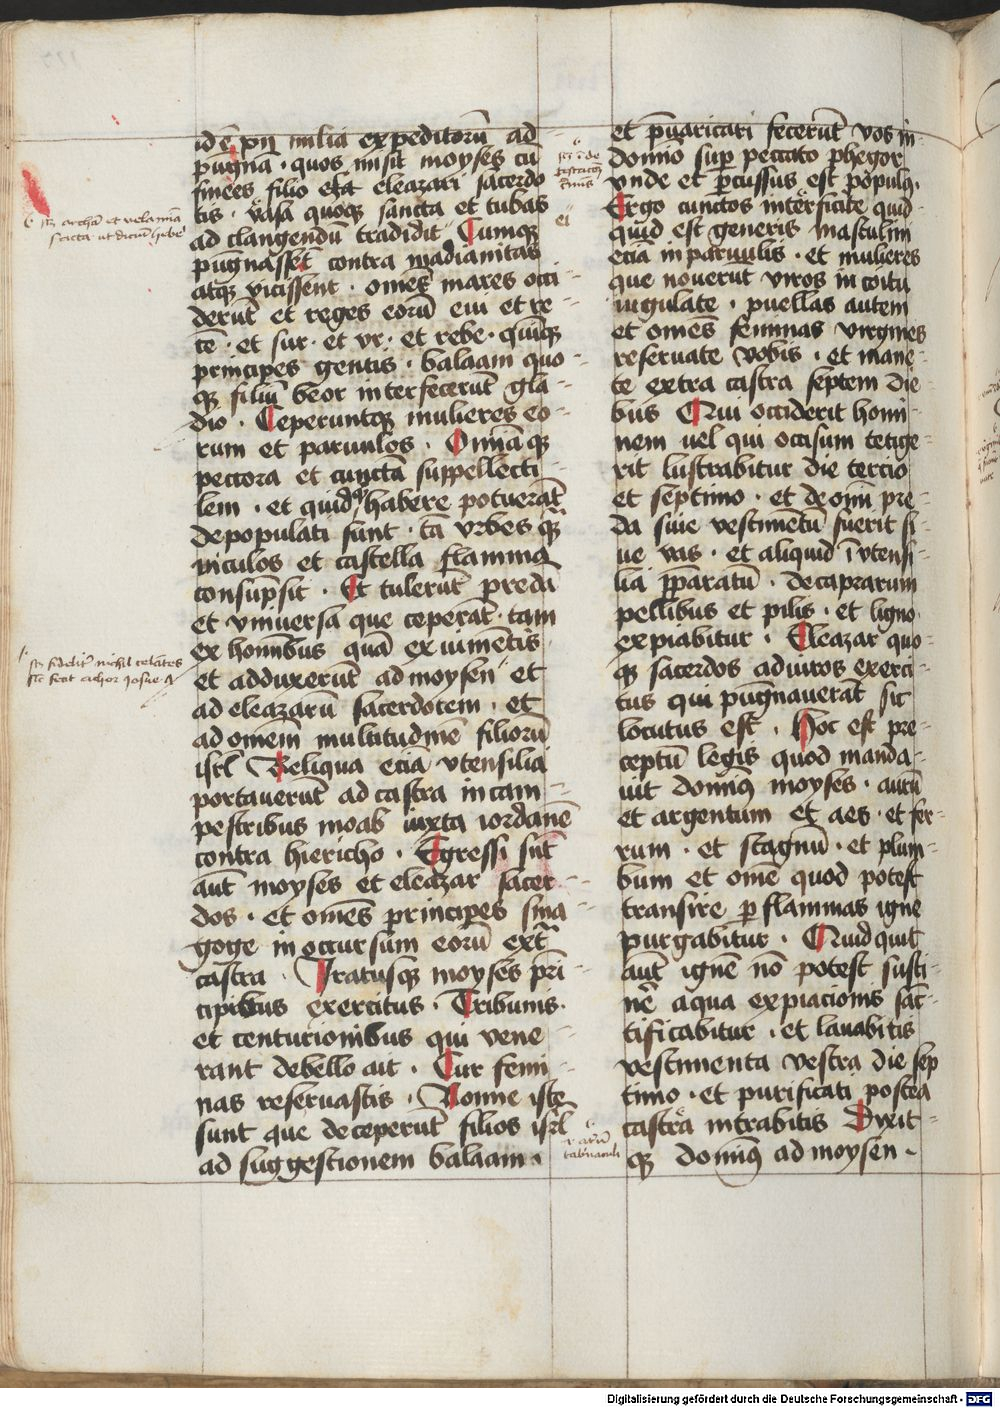 id ē xij milia expeditorū ad
pugnā · quos misit moyses cū
finees filio eleazari sacerdo
tis · vasa quoqꝫ sancta et tubas
ad clangendū tradidit Cumqꝫ
pugnassēt contra madianitas
atqꝫ vicissent · omēs mares occi
derūt et reges eorū eui et re
cē · et sur · et vr · et rebe · quīqꝫ
principes gentis · balaam quo
qꝫ filiū beor interfecerūt gla
dio · Ceperuntqꝫ mulieres eo
rum et paruulos · Omīaqꝫ
peccora et cunctā suppellecti
lem · et quidqꝫ habere potuerāt
depopulati sunt · tā vrbes qꝫ
viculos et castella flamma
consūpsit · Et tulerūt predā
et vniuersa que ceperāt · tam
ex hominibus quā ex iumētis
et adduxerūt ad moysen et
ad eleazarū sacerdotem · et
ad omēm multitudinē filiorū
isrl̄ Reliqua eciā vtensilia
portauerūt ad castra in cam
pestribus moab iuxta iordanē
contra hiericho · Egressi sūt
aūt moyses et eleazar sacer
dos · et omēs principes sina
goge in occursum eorū ext̄
castra · Iratusqꝫ moyses prī
cipibus exercitus · Tribunis ·
et centurionibus qui vene
rant de bello ait · Cur femi
nas reseruastis · Nonne iste
sunt que deceperūt filios isrl̄
ad suggestionem balaam ·
et p̄uaricari fecerūt vos in
domino sup̄ peccato phegor
vnde et p̄cussus est populꝯ ·
Ergo cunctos interficite quid
quid est generis masculini
eciā in paruulis · et mulieres
que nouerūt viros in coitu
iugulate · puellas autem
et omēs feminas virgines
reseruate vobis · et mane
te extra castra septem die
bus Qui occiderit homi
nem uel qui occisum tetige
rit lustrabitur die tercio
et septimo · et de omī pre
da siue vestimētū fuerit si
ue vas · et aliquid ī vtensi
lia p̄paratū · de caprarum
pellibus et pilis · et ligno
expiabitur · Eleazar quo
qꝫ sacerdos ad uiros exerci
tus qui pugnauerāt sic
locutus est · Hoc est pre
ceptū legis quod manda
uit dominꝯ moyses · aurū
et argentum et aes · et fer
rum · et stagnū · et plum
bum et omē quod potest
transire p̄ flammas igne
purgabitur · Quidquit
aūt ignē nō potest susti
nē aqua expiacionis sāc
tificabitur · et lauabitis
vestimenta vestra die sep
timo · et purificati postea
castra intrabitis Dixit
qꝫ dominꝯ ad moysen ·
Digitalisierung gefördert durch die Deutsche Forschungsgemeinschaft - DFG